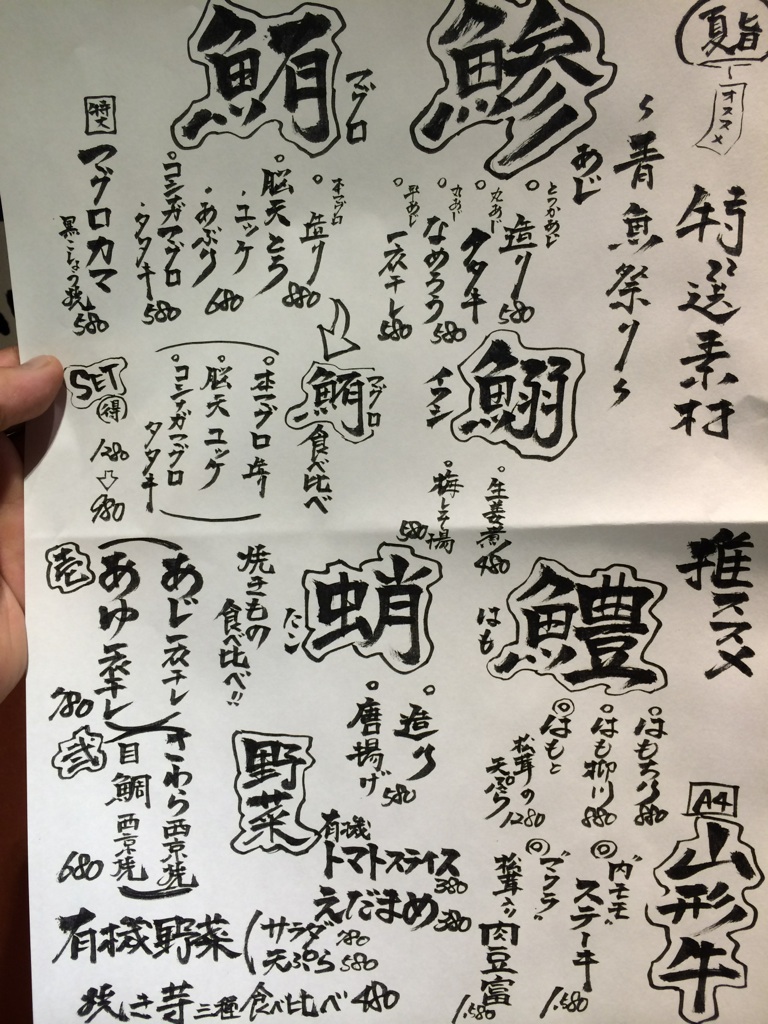 夏旨
オススメ
特選素材
推ススメ
〜青魚祭り〜
鯵
あじ
とつかあじ
造り 580
丸あじ
タタキ
丸あじ
なめろう 580
平あじ
一夜干し 580
鮪
マグロ
本マグロ
造り 880
脳天とろ
ユッケ
あぶり 680
コシナガマグロ
タタキ 580
特大
マグロカマ
黒こしょう焼 580
鰯
イワシ
生姜煮 480
梅しそ揚 580
鮪
マグロ
食べ比べ
本マグロ 造り
脳天 ユッケ
コシナガマグロ
タタキ
SET
得
1280
980
鱧
はも
はも天ぷら 880
はも柳川 880
はもと
松茸の
天ぷら 1280
蛸
たこ
造り
唐揚げ 580
焼きもの
食べ比べ!!
壱
あじ一夜干し
あゆ一夜干し
780
弐
さわら西京焼
目鯛 西京焼
680
A4
山形牛
"内モモ"
ステーキ 1.580
"マクラ"
松茸入り 肉豆富 1.580
野菜
有機
トマトスライス 380
えだまめ 380
有機野菜
サラダ 780
天ぷら 580
焼き芋三種食べ比べ 480